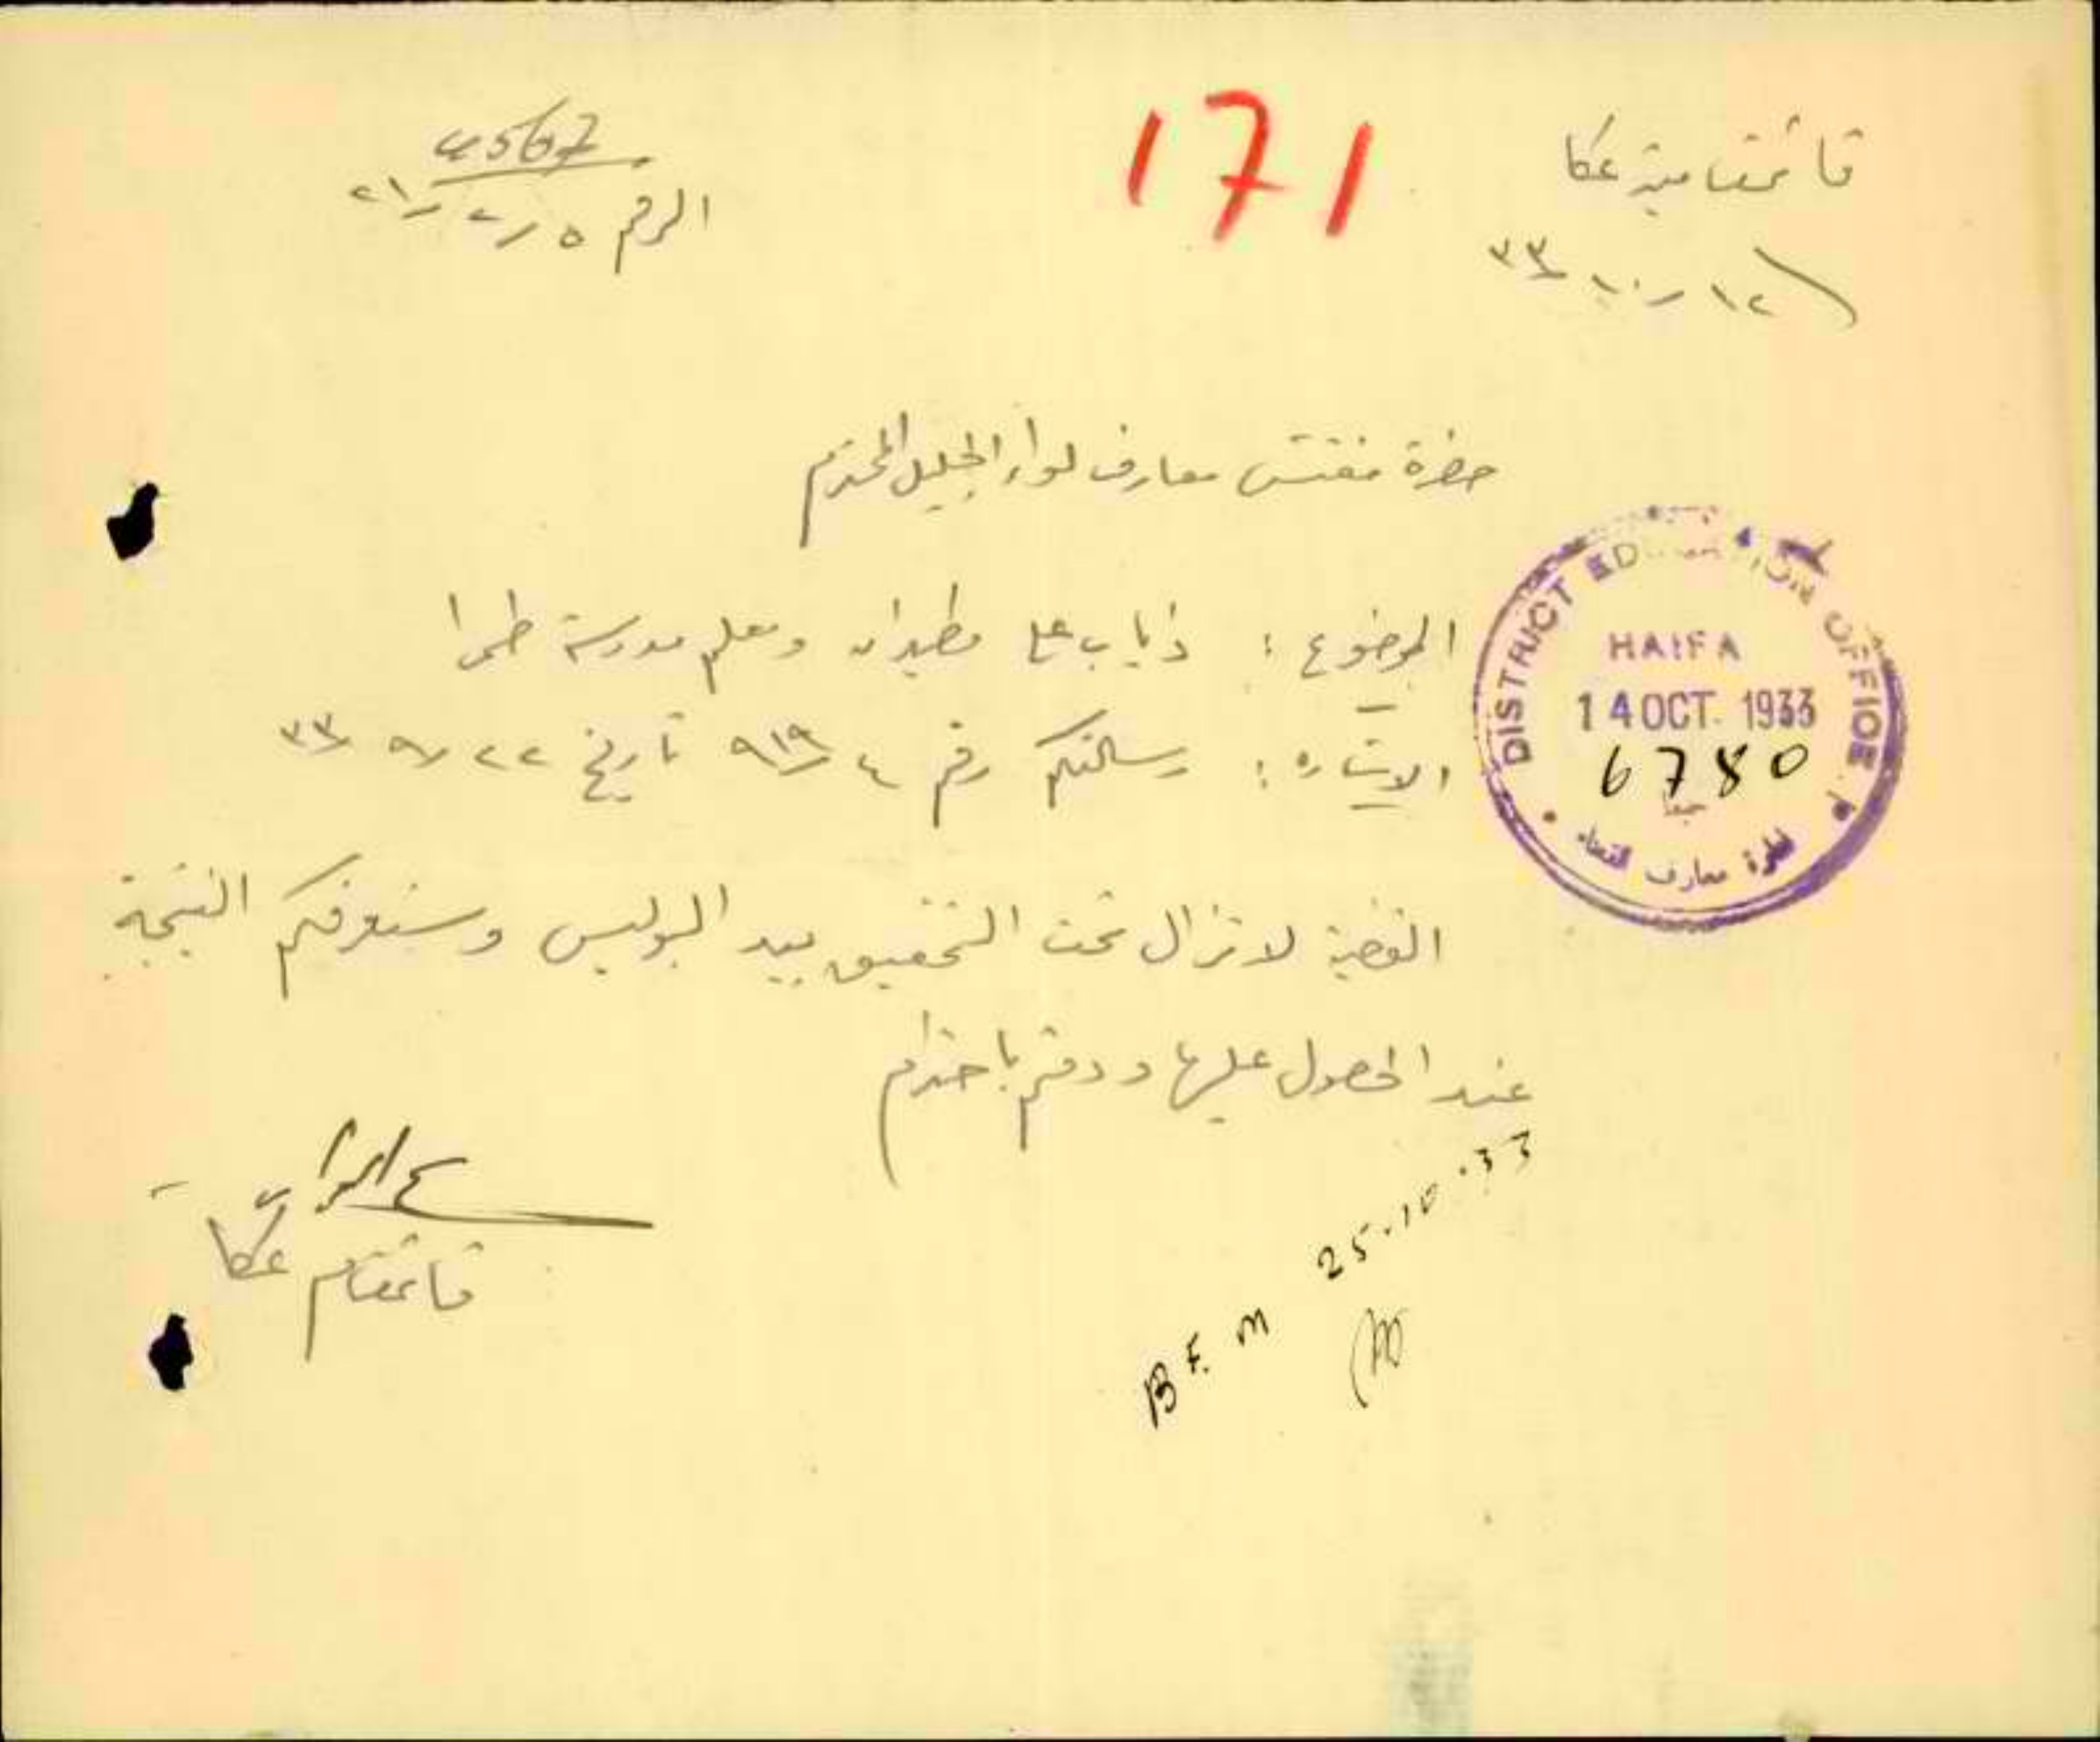 قائمقامية عكا
171
4567
الرقم ٥ / ٢ / ٢١
١٢ / ١٠ / ٣٣
حضرة مفتش معارف لواء الجليل المحترم
DISTRICT EDUCATION OFFICE
HAIFA
14 OCT. 1933
6780
حيفا
دائرة معارف القضاء
الموضوع : ذياب علي ومعلم مدرسة طمرا
الاشاره : رسالتكم رقم ٤ / ٩١٩ تاريخ ٢٢ / ٩ / ٣٣
القضية لا تزال تحت التحقيق بيد البوليس وسنعرفكم النتيجة
عند الحصول عليها ودمتم باحترام
قائمقام عكا
25.10.33
B F. M